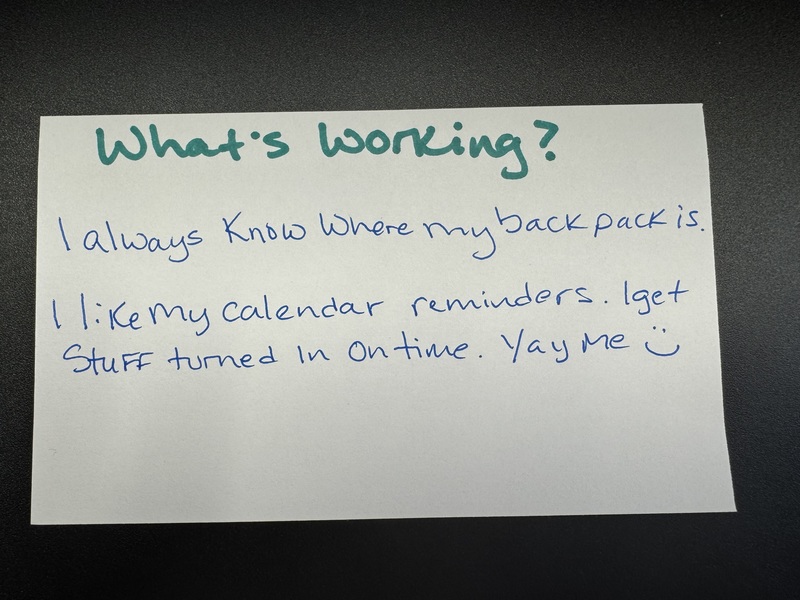 What's Working?
I always Know Where my backpack is.
I like my calendar reminders. I get
Stuff turned in On time. Yay Me :)